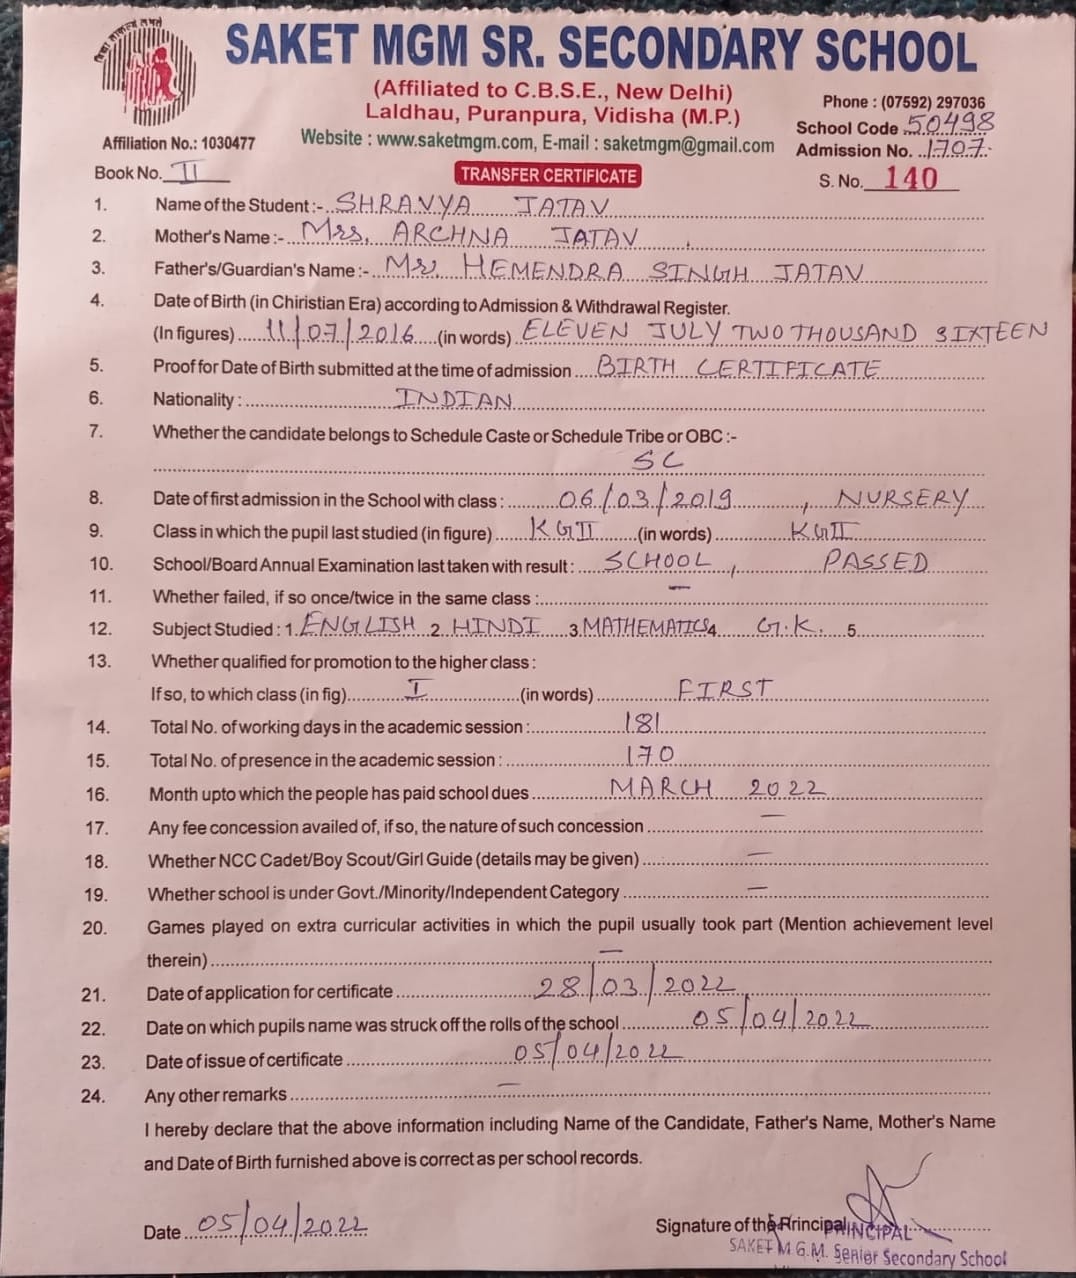 विद्या
SAKET MGM SR. SECONDARY SCHOOL
(Affiliated to C.B.S.E., New Delhi)
Laldhau, Puranpura, Vidisha (M.P.)
Phone : (07592) 297036
School Code 50498
Affiliation No.: 1030477
Website : www.saketmgm.com, E-mail : saketmgm@gmail.com
Admission No. 1707
Book No. II
TRANSFER CERTIFICATE
S. No. 140
1. Name of the Student :- SHRAVYA JATAV
2. Mother's Name :- Mrs. ARCHNA JATAV
3. Father's/Guardian's Name :- Mr. HEMENDRA SINGH JATAV
4. Date of Birth (in Chiristian Era) according to Admission & Withdrawal Register.
(In figures) 11/07/2016 (in words) ELEVEN JULY TWO THOUSAND SIXTEEN
5. Proof for Date of Birth submitted at the time of admission BIRTH CERTIFICATE
6. Nationality : INDIAN
7. Whether the candidate belongs to Schedule Caste or Schedule Tribe or OBC :-
SC
8. Date of first admission in the School with class : 06/03/2019, NURSERY
9. Class in which the pupil last studied (in figure) KG II (in words) KG II
10. School/Board Annual Examination last taken with result : SCHOOL, PASSED
11. Whether failed, if so once/twice in the same class : —
12. Subject Studied : 1. ENGLISH 2. HINDI 3 MATHEMATICS 4 G.K. 5
13. Whether qualified for promotion to the higher class :
If so, to which class (in fig) I (in words) FIRST
14. Total No. of working days in the academic session : 181
15. Total No. of presence in the academic session : 170
16. Month upto which the people has paid school dues MARCH 2022
17. Any fee concession availed of, if so, the nature of such concession —
18. Whether NCC Cadet/Boy Scout/Girl Guide (details may be given) —
19. Whether school is under Govt./Minority/Independent Category —
20. Games played on extra curricular activities in which the pupil usually took part (Mention achievement level
therein) —
21. Date of application for certificate 28/03/2022
22. Date on which pupils name was struck off the rolls of the school 05/04/2022
23. Date of issue of certificate 05/04/2022
24. Any other remarks —
I hereby declare that the above information including Name of the Candidate, Father's Name, Mother's Name
and Date of Birth furnished above is correct as per school records.
Date 05/04/2022
Signature of the Principal
PRINCIPAL
SAKET M.G.M. Senior Secondary School